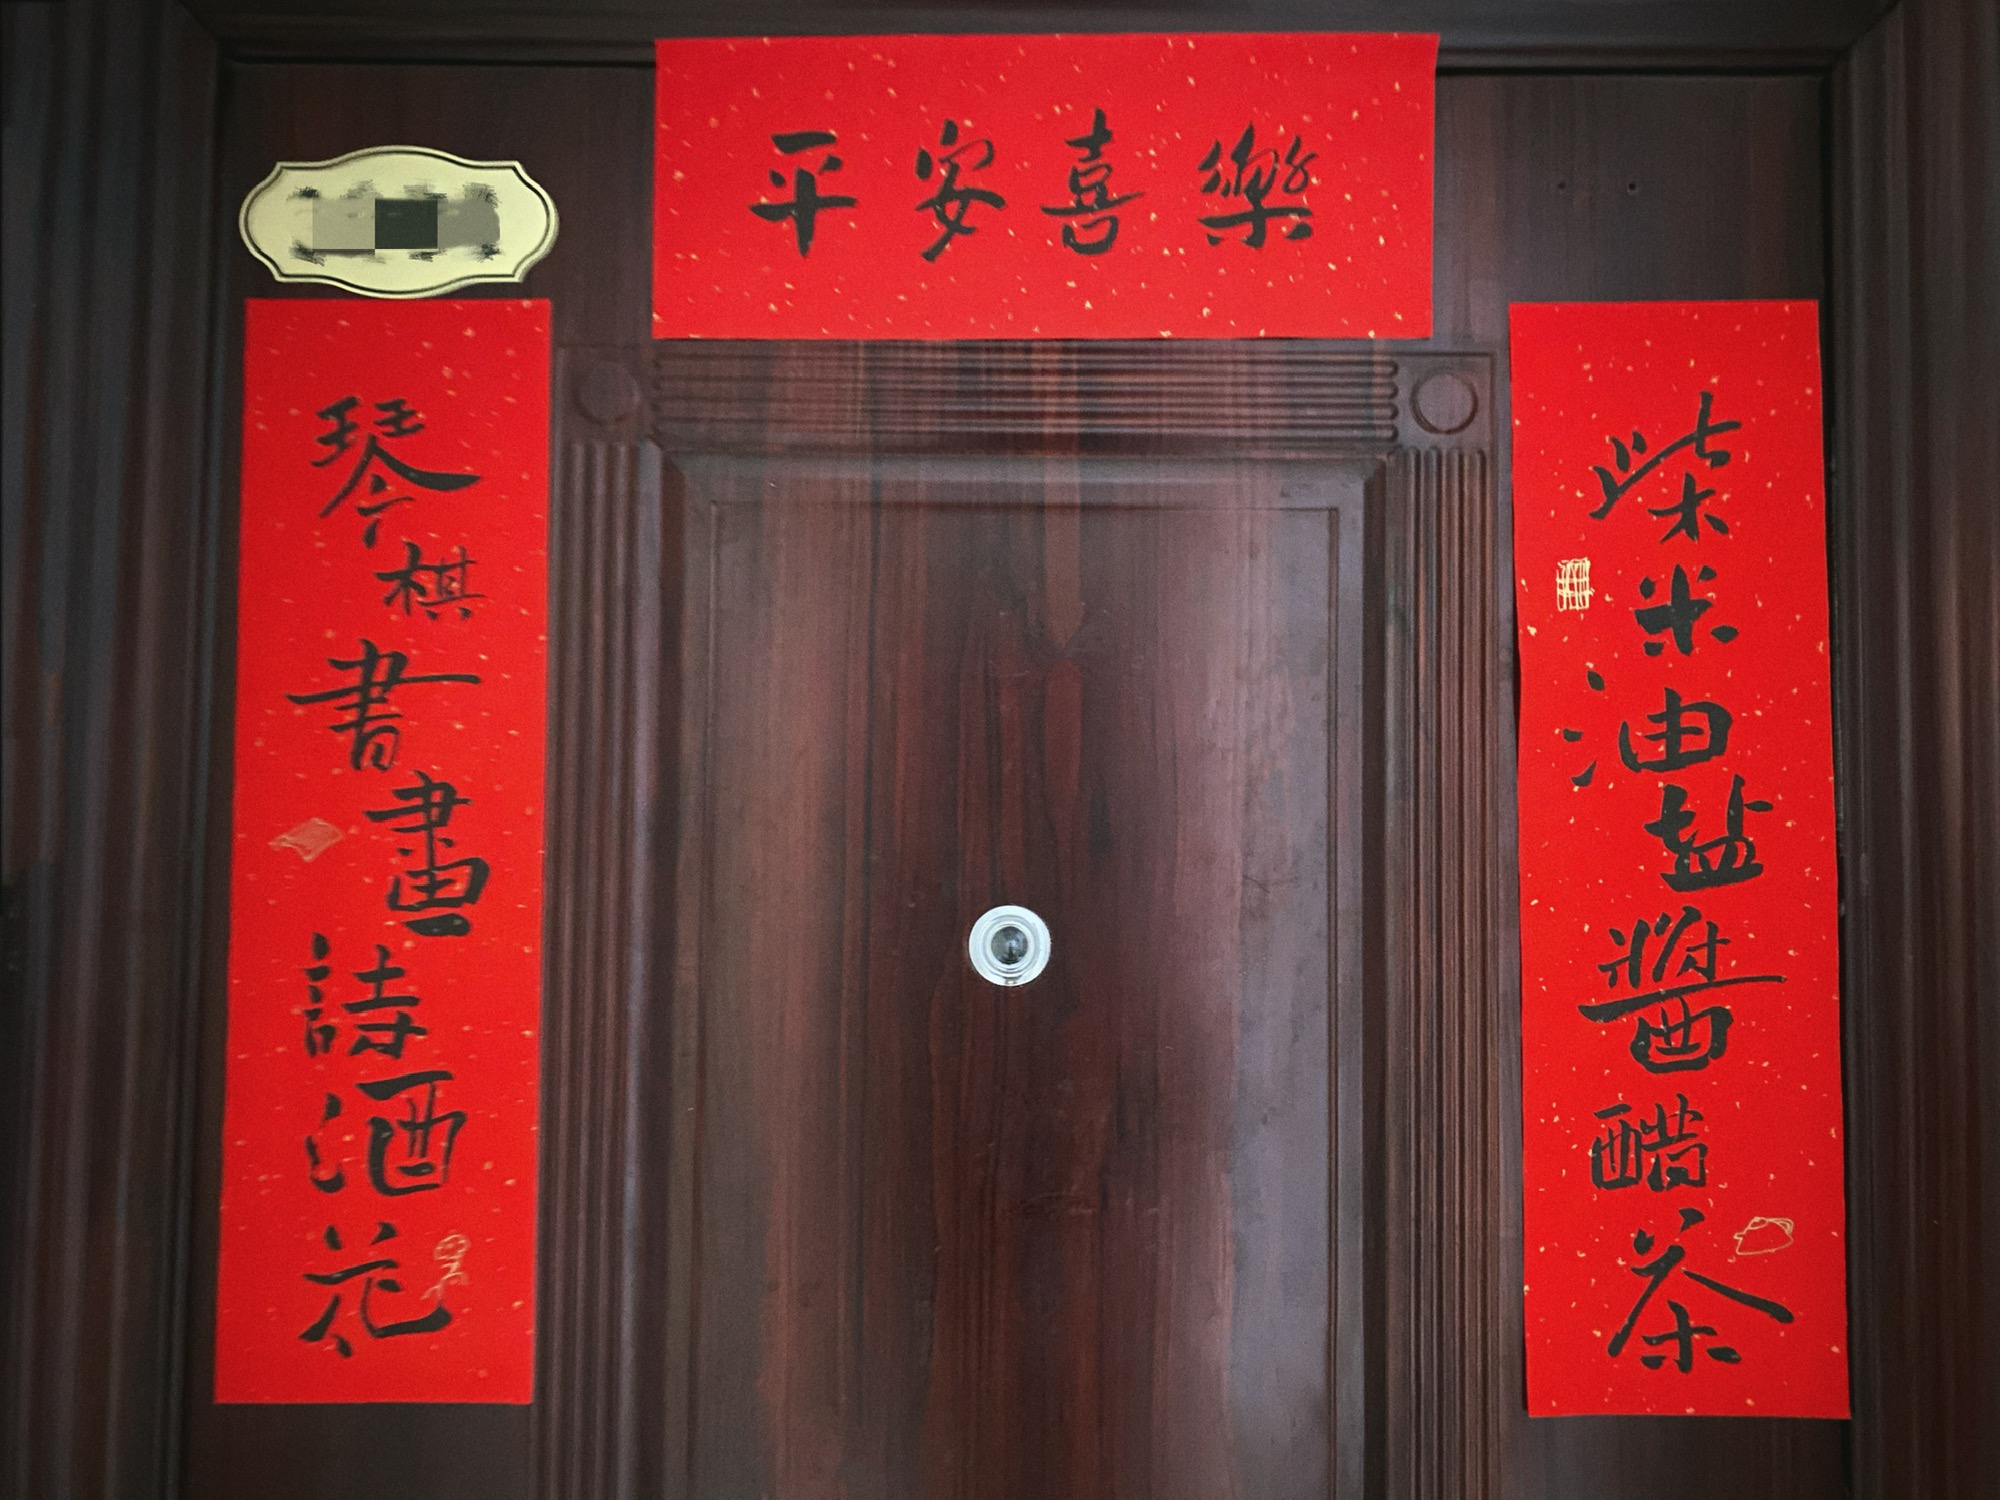 平安喜樂
柴米油盐醬醋茶
琴棋書畫詩酒花